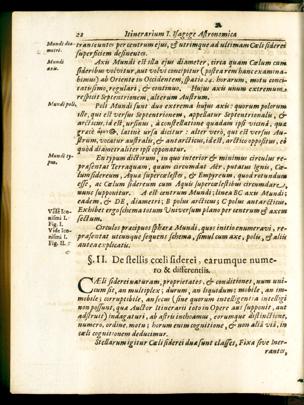 22 Itinerarium I. Isagoge Astronomica
Mundi diametri.
transeuntes per centrum ejus, & utrimque ad ultimam Cæli siderei
superficiem desinentes.
Mundi axis.
Axis Mundi est illa ejus diameter, circa quam Cælum cum
sideribus volvitur, aut volvi concipitur (postea rem hanc examina-
bimus) ab Oriente in Occidentem, spatio 24. horarum, motu conci-
tatissimo, regulari, & continuo. Hujus axis unum extremum
respicit Septentrionem, alterum Austrum.
Mundi poli.
Poli Mundi sunt duo extrema hujus axis: quorum polorum
ille, qui est versus Septentrionem, appellatur Septentrionalis, &
arcticus, id est, ursinus, à constellatione quadam ipsi vicinâ, quæ
græcè latinè ursa dicitur: alter verò, qui est versus Au-
strum, vocatur australis, & antarcticus, id est, arctico oppositus, eò
quòd diametraliter ipsi opponatur.
Mundi typus.
En typum dictorum, in quo interior & minimus circulus re-
præsentat Terraqueum, quem circumdat Aër, putatur Ignis, Cæ-
lum sidereum, Aquæ supercælestes, & Empyreum. quod rotundum
esse, ac Cælum sidereum cum Aquis supercælestibus circumdare,
nunc supponitur. A est centrum Mundi; linea BC axis Mundi;
eadem, & DE, diametri; B polus arcticus; C polus antarcticus.
Exhibet ergo schema totum Universum plano per centrum & axem
sectum.
Vide Ico-
nismi I.
Fig. I.
Vide Ico-
nismi I.
Fig. II.
Circulos præcipuos sphæra Mundi, quos initio enumeravi, re-
præsentat utcunque sequens schema, simul cum axe, polis, & aliis
autea explicatis.
§. II. De stellis cœli siderei, earumque nume-
ro & differentiis.
CÆli siderei naturam, proprietates, & conditiones, num uni-
cum sit, an multiplex; durum, an liquidum; mobile, an im-
mobile; corruptibile, an secus (sine quorum intelligentia intelligi
non possunt, quæ Auctor Itinerarii toto in Opere aut supponit, aut
adstruit) indagaturi, ab astris inchoamus, eorumque distinctione,
numero, ordine, motu; horum enim cognitione, & non aliâ viâ, in
cæli cognitionem deducimur.
Stellarum igitur Cæli siderei duæ sunt classes, Fixæ sive Iner-
rantes,